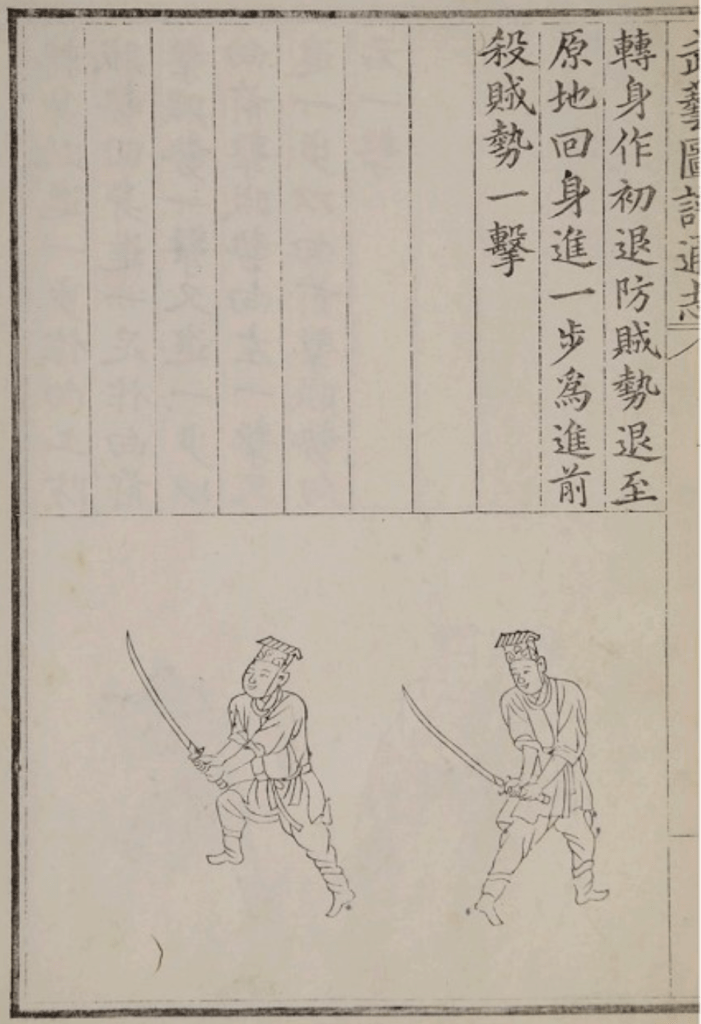 武藝圖譜通志
轉身作初退防賊勢退至
原地回身進一步爲進前
殺賊勢一擊